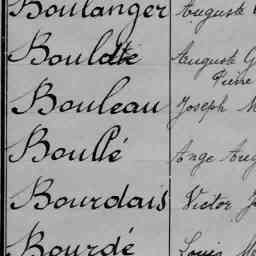 Boulanger Auguste
Auguste G
Pierre
Bouleau Joseph M
Boullé Ange Aug
Bourdais Victor J
Bourdé Louis M